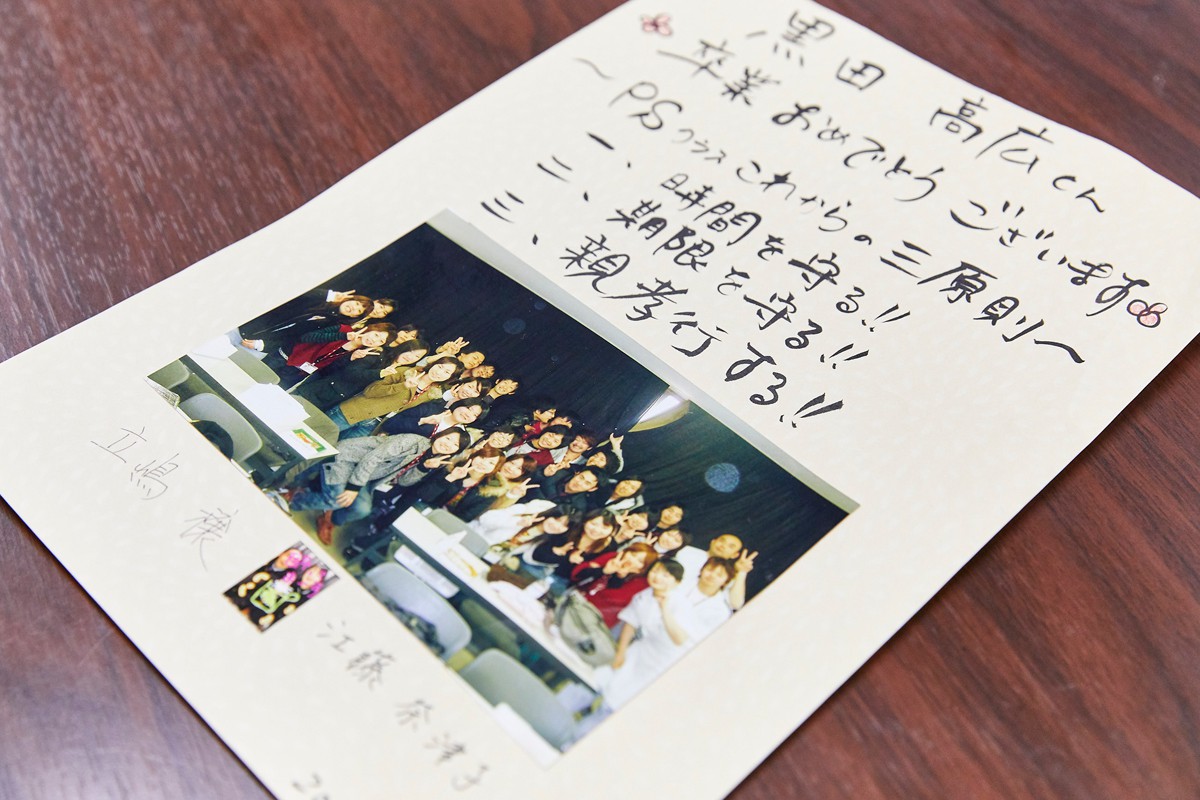 黒田 高広くん
卒業おめでとうございます
～PSクラスこれからの三原則～
一、時間を守る!!
二、期限を守る!!
三、親孝行する!!
立嶋
江藤 奈津子